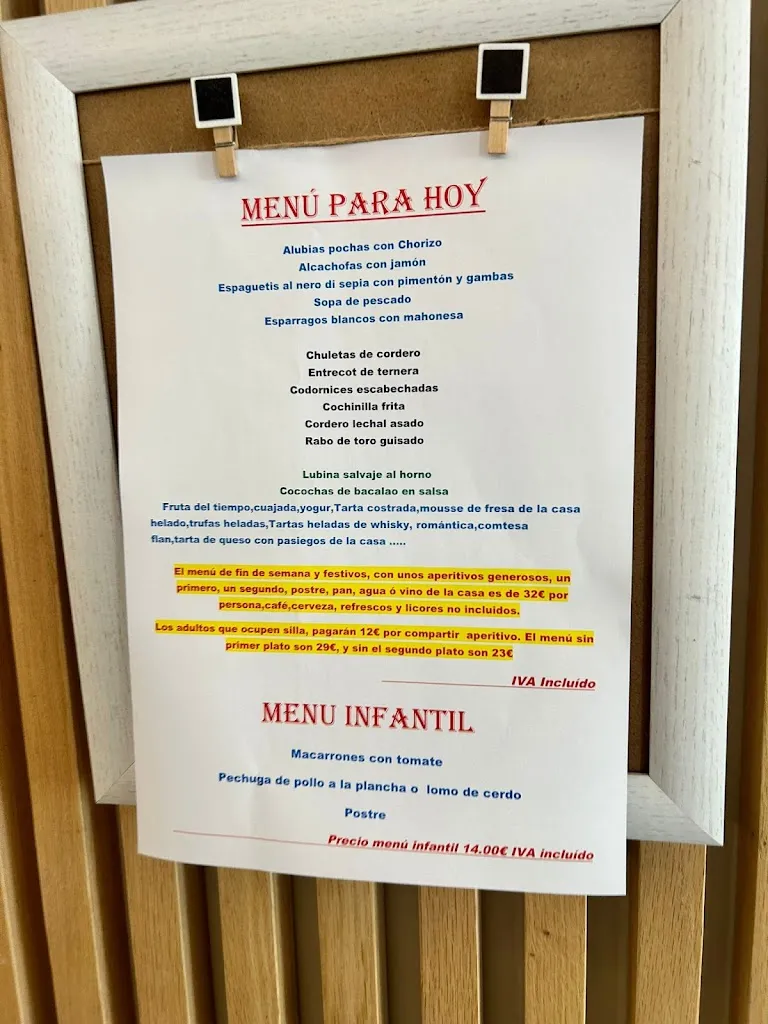 MENÚ PARA HOY
Alubias pochas con Chorizo
Alcachofas con jamón
Espaguetis al nero di sepia con pimentón y gambas
Sopa de pescado
Esparragos blancos con mahonesa
Chuletas de cordero
Entrecot de ternera
Codornices escabechadas
Cochinilla frita
Cordero lechal asado
Rabo de toro guisado
Lubina salvaje al horno
Cocochas de bacalao en salsa
Fruta del tiempo,cuajada,yogur,Tarta costrada,mousse de fresa de la casa
helado,trufas heladas,Tartas heladas de whisky, romántica,comtesa
flan,tarta de queso con pasiegos de la casa .....
El menú de fin de semana y festivos, con unos aperitivos generosos, un
primero, un segundo, postre, pan, agua ó vino de la casa es de 32€ por
persona,café,cerveza, refrescos y licores no incluidos.
Los adultos que ocupen silla, pagarán 12€ por compartir aperitivo. El menú sin
primer plato son 29€, y sin el segundo plato son 23€
IVA Incluído
MENU INFANTIL
Macarrones con tomate
Pechuga de pollo a la plancha o lomo de cerdo
Postre
Precio menú infantil 14.00€ IVA incluído